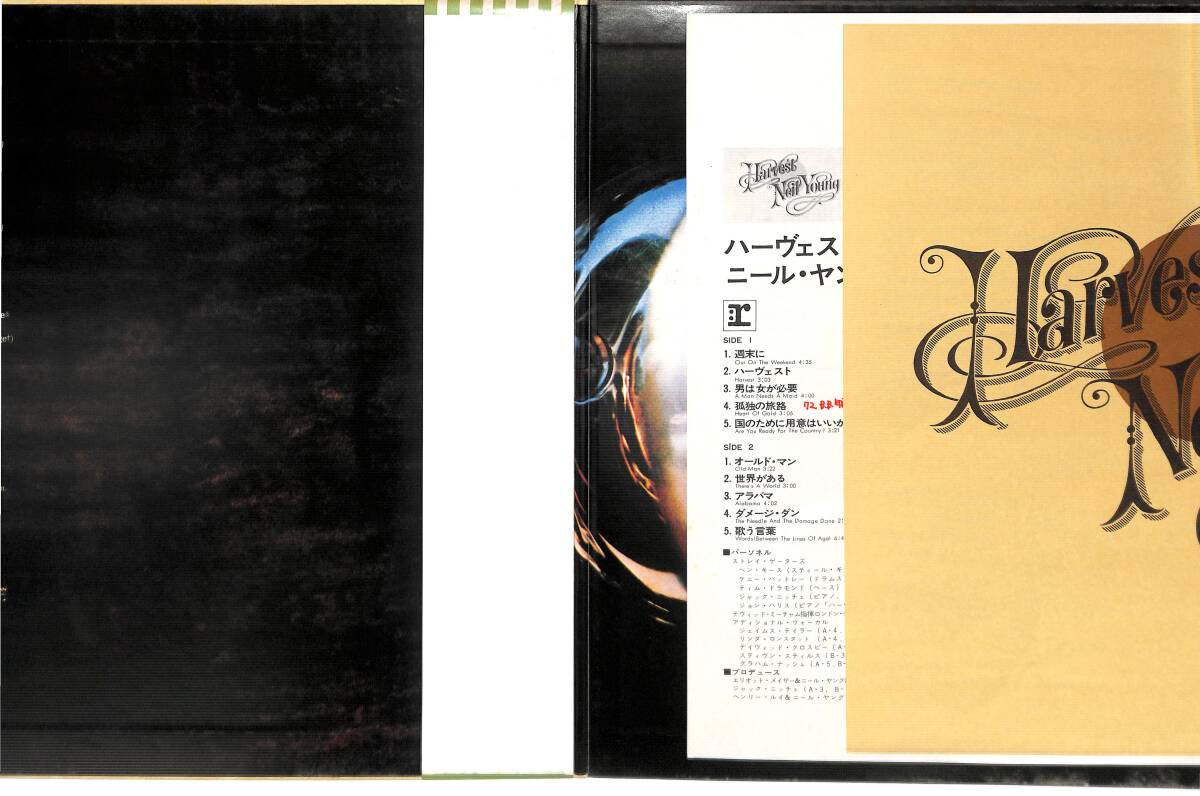 Harvest
Neil Young
ハーヴェス
ニール・ヤン
r
SIDE 1
1. 週末に
Out On The Weekend 4:35
2. ハーヴェスト
Harvest 3:03
3. 男は女が必要
A Man Needs A Maid 4:00
4. 孤独の旅路 72 B.B.
Heart Of Gold 3:05
5. 国のために用意はいいか
Are You Ready For The Country? 3:21
SIDE 2
1. オールド・マン
Old Man 3:22
2. 世界がある
There's A World 3:00
3. アラバマ
Alabama 4:02
4. ダメージ・ダン
The Needle And The Damage Done 2:
5. 歌う言葉
Words(Between The Lines Of Age) 6:4
■パーソネル
ストレイ・ゲーターズ
ベン・キース (スティール・ギ
ケニー・バットレー (ドラムス
ティム・ドラモンド (ベース)
ジャック・ニッチェ (ピアノ,
ジョン・ハリス (ピアノ「ハー
デヴィッド・ミーチャム指揮ロンドン・
アディショナル・ヴォーカル
ジェイムス・テイラー (A-4,
リンダ・ロンスタット (A-4,
デイヴィッド・クロスビー (A-
スティヴン・スティルス (B-3
グラハム・ナッシュ (A-5, B-
■プロデュース
エリオット・メイザー&ニール・ヤング
ジャック・ニッチェ (A-3, B-
ヘンリー・ルイ&ニール・ヤング
Harves
Ne